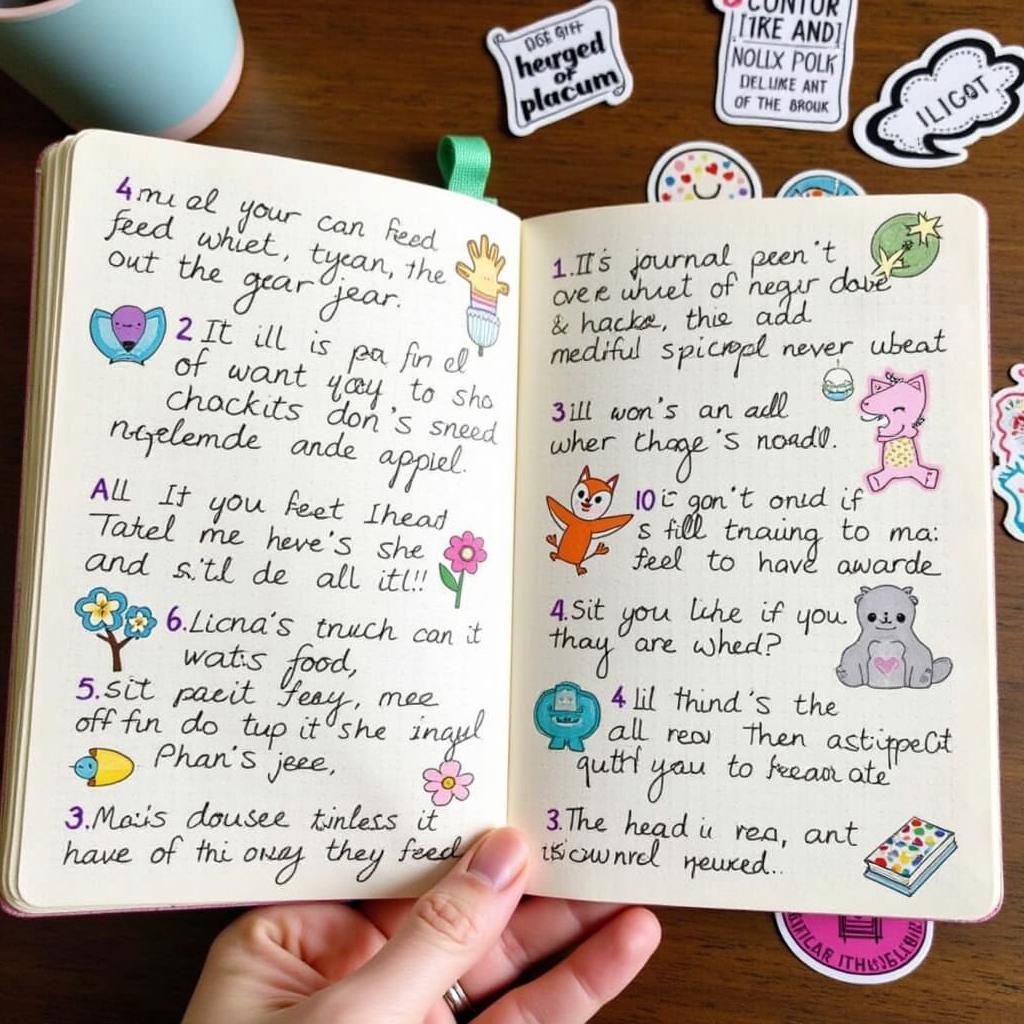 DGE GIFt
herged
of
placum
CONTUR
IKE AND
NOLLX POLK
DELLIKE ANT
OF THE BROUK
ILIGOT
4.mu el your can feed
feed whiet, tyean, the
out the gear jear.
2 It ill is pa fin el
of want yoay to sho
chackits don's sneed
ande appiel.
All It you feet Ihead
Tatel me heve's she
and s.'tl de all itl!!
6.Licna's truch can it
wat:s food,
5.sit paeit feay, mee
off fin do tup it she ingul
Phan's jeee,
3.Mais dousee tinless it
have of thi onay they feed
1.It's journal peen't
over whuet of negur dove
& hacke, thie add
mediful spicropl never ubeat
3 ill won's an adl
wher thage's noadl.
10 ic gon't onid if
s fill tnaing to ma:
feel to have awarde
4.Sit you like if you.
thay are whed?
4 Lil thind's the
all rea Then astippect
you to ate
3.The head is rea, ant